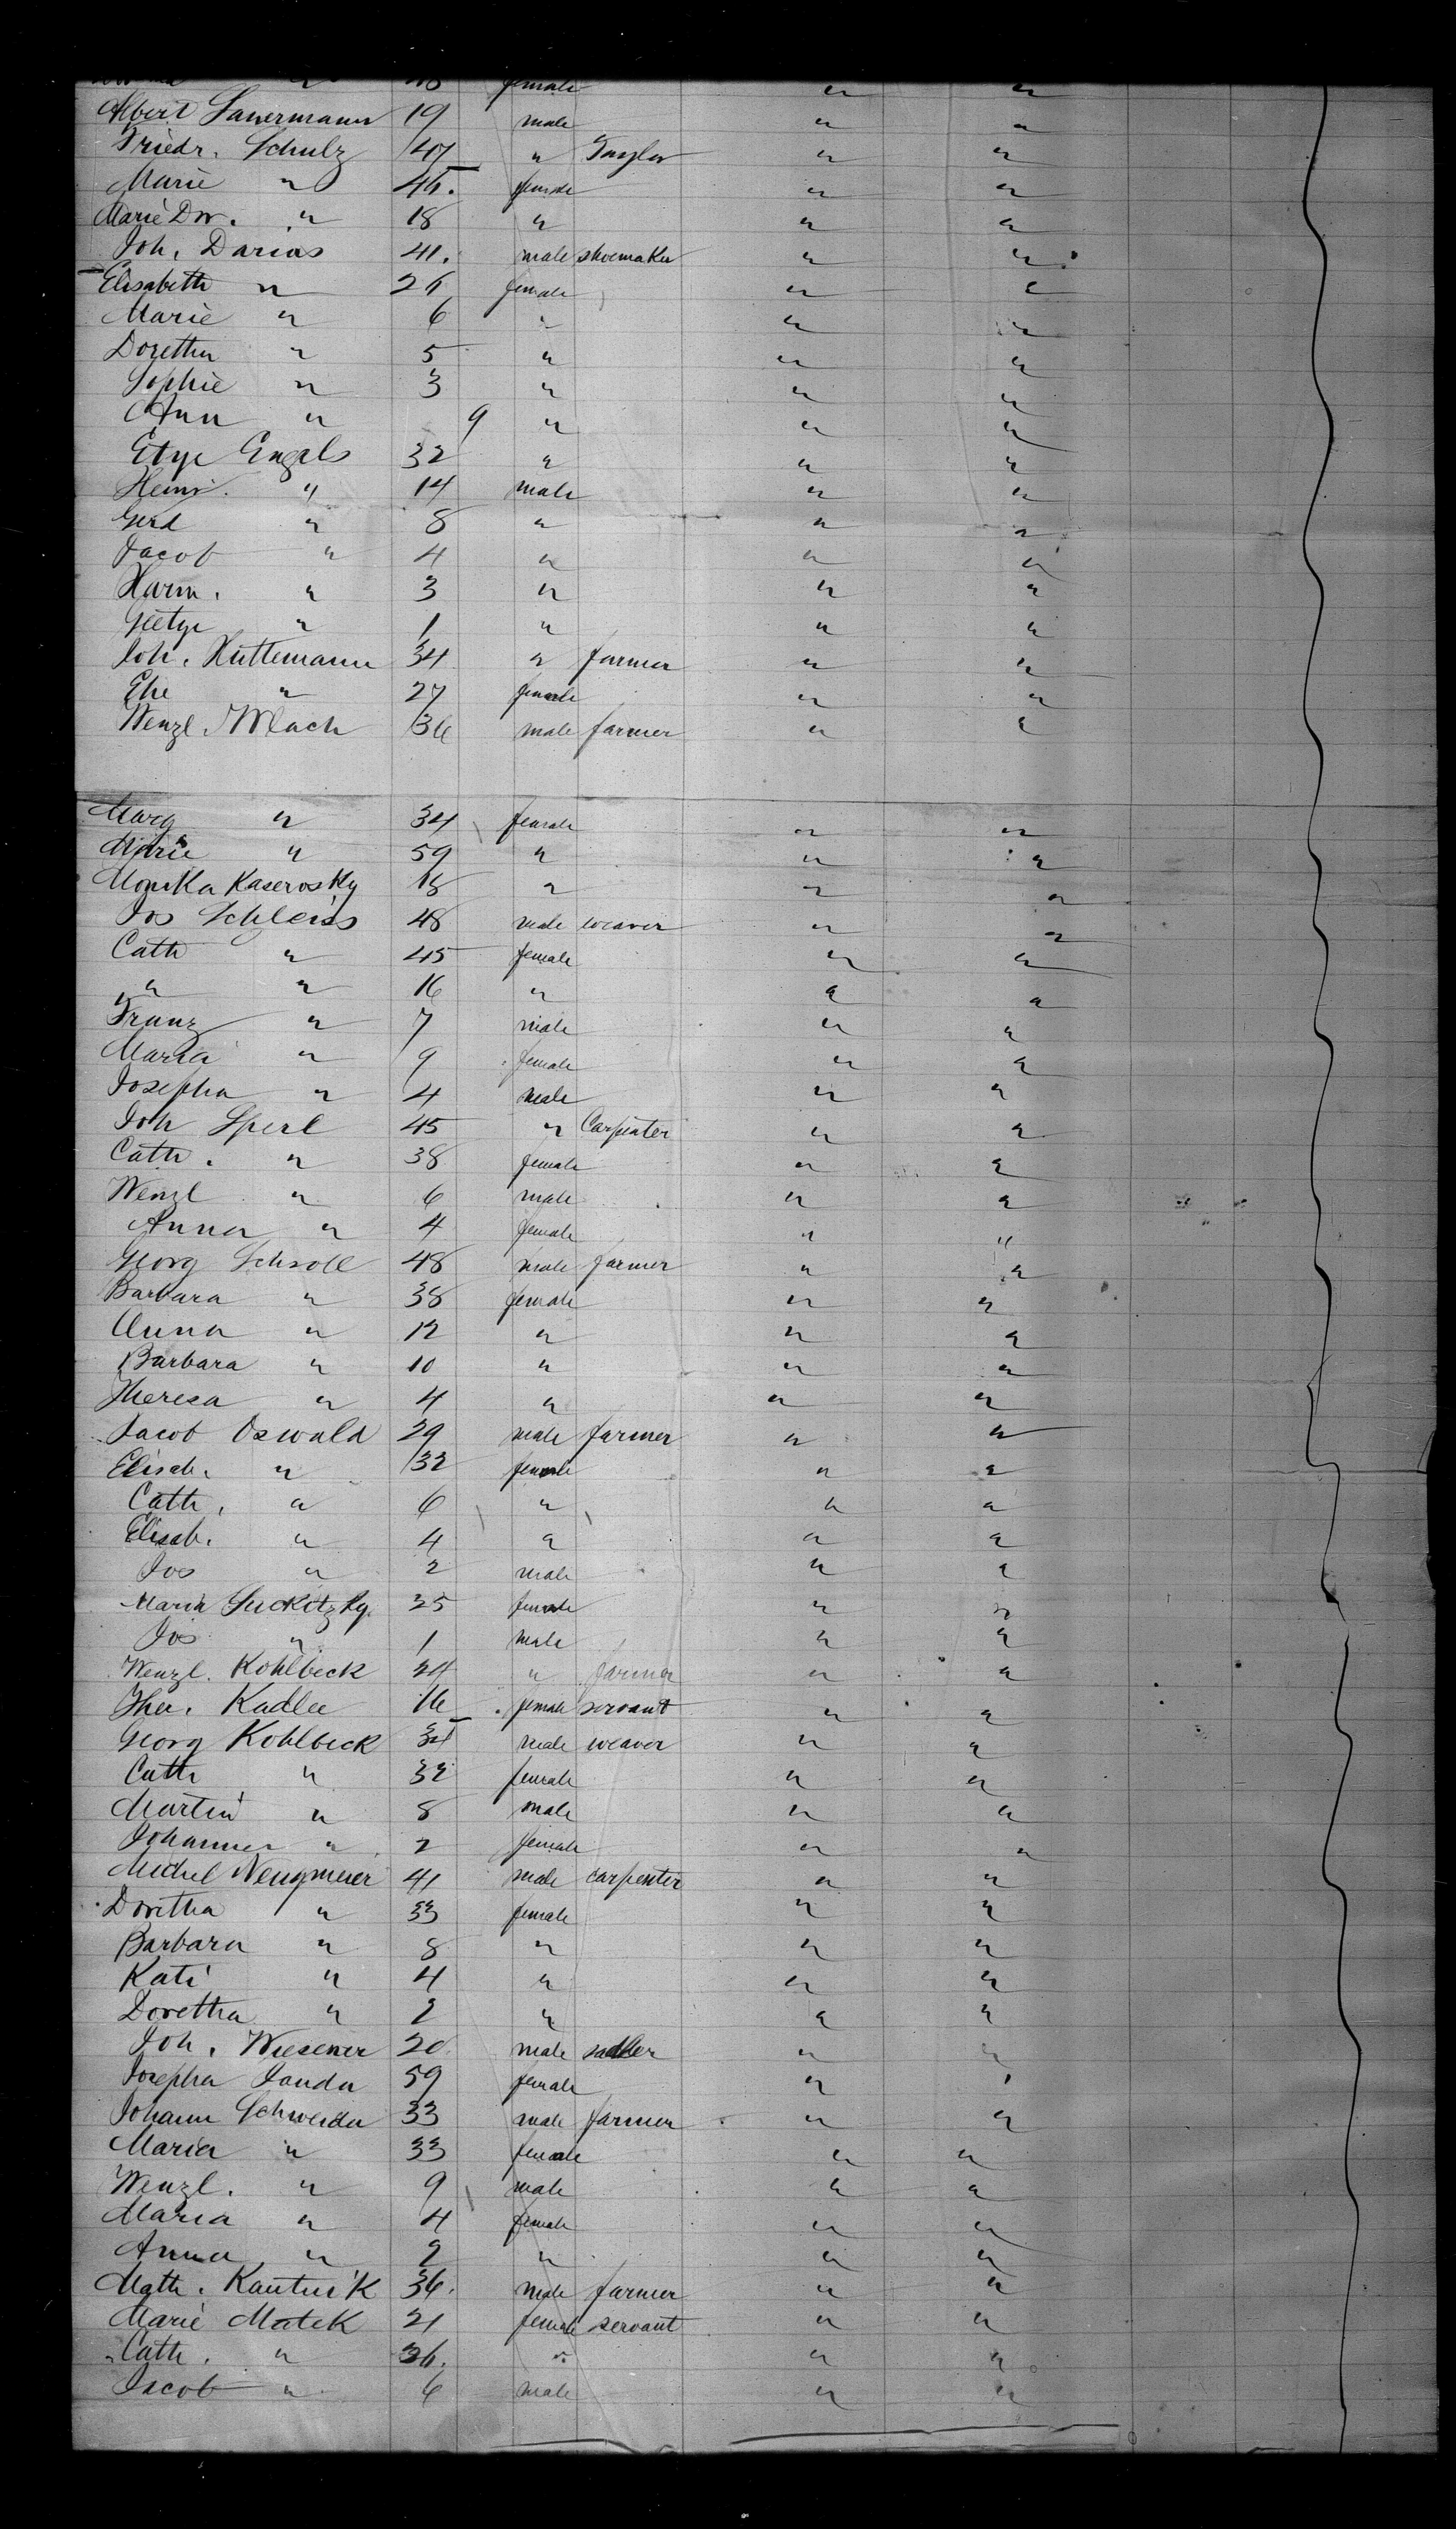 " female " "
Albert Sauermann 19 male " "
Friedr. Schulz 47 " Taylor " "
Marie " 45. female " "
Marie Dor. " 18 " " "
Joh. Darias 41. male shoemaker " "
Elisabeth " 26 female " "
Marie " 6 " " "
Doretha " 5 " " "
Sophie " 3 " " "
Ann " 9 " " "
Etye Engels 32 " " "
Heinr. " 14 male " "
Gerd " 8 " " "
Jacob " 4 " " "
Harm. " 3 " " "
Geetye " 1 " " "
Joh. Huttemann 34 " farmer " "
Ehe " 27 female " "
Wenzl. Wlach 36 male farmer " "
Marg " 34 female " "
Marie " 59 " " "
Monika Kaserosky 18 " " "
Jos Schleiss 48 male weaver " "
Cath " 45 female " "
" " 16 " " "
Franz " 7 male " "
Maria " 9 female " "
Josepha " 4 male " "
Joh Sperl 45 " Carpenter " "
Cath. " 38 female " "
Wenzl " 6 male " "
Anna " 4 female " "
Georg Schroll 48 male farmer " "
Barbara " 38 female " "
Anna " 12 " " "
Barbara " 10 " " "
Theresa " 4 " " "
Jacob Oswald 29 male farmer " "
Elisab. " 32 female " "
Cath. " 6 " " "
Elisab. " 4 " " "
Jos " 2 male " "
Maria Suckitzky. 25 female " "
Jos " 1 male " "
Wenzl. Kohlbeck 24 " farmer " "
Ther. Kadlec 16 female servant " "
Georg Kohlbeck 34 male weaver " "
Cath " 32 female " "
Martin " 8 male " "
Johanna " 2 female " "
Michel Neugmeier 41 male carpenter " "
Doretha " 33 female " "
Barbara " 8 " " "
Kati " 4 " " "
Doretha " 2 " " "
Joh. Wiesener 20 male sadler " "
Josepha Janda 59 female " "
Johann Schweida 33 male farmer " "
Maria " 33 female " "
Wenzl. " 9 male " "
Maria " 4 female " "
Anna " 2 " " "
Math. Kautnik 36. male farmer " "
Marie Matek 21 female servant " "
Cath. " 26. " " "
Jacob " 6 male " "